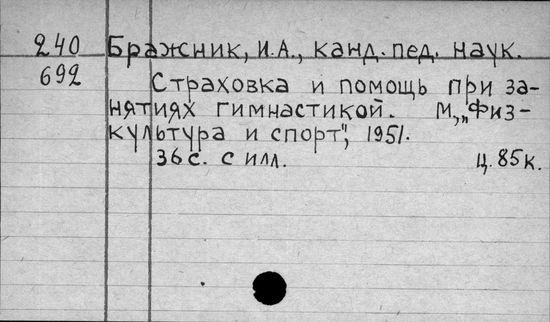 240 Бражник, И.А., канд. пед. наук.
692 Страховка и помощь при за-
нятиях гимнастикой. М., „Физ-
культура и спорт", 1951.
36 с. с илл. Ц. 85 к.